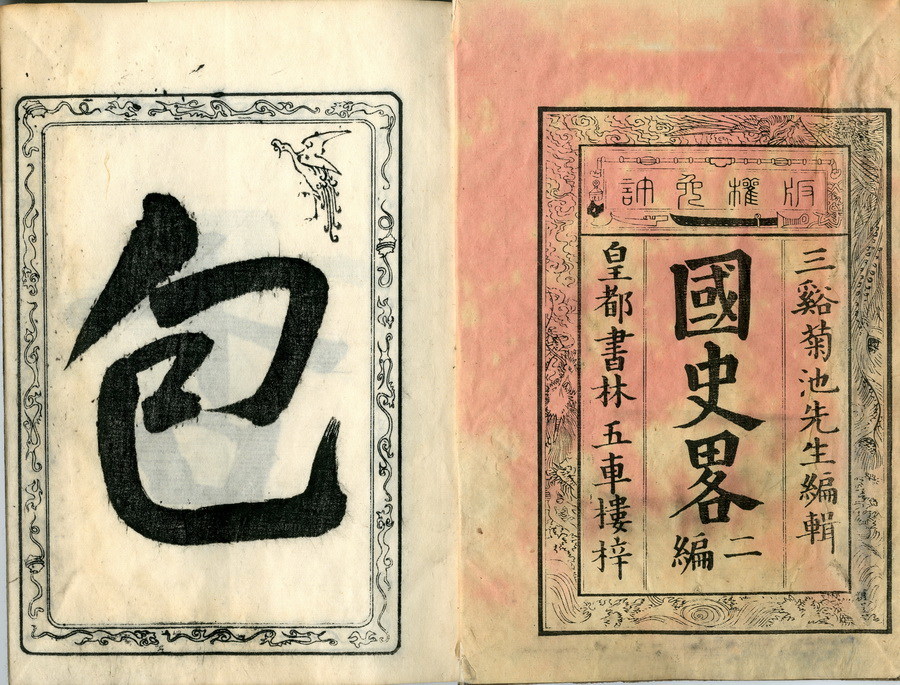 版權免許
三谿菊池先生編輯
國史畧
二編
皇都書林五車樓梓
包